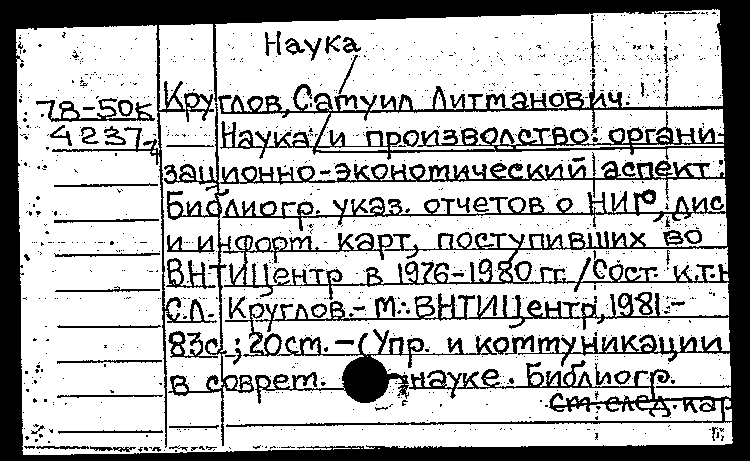 Наука
Круглов, Самуил Литманович.
78-50к
4237-4
Наука и производство: органи-
зационно-экономический аспект:
Библиогр. указ. отчетов о НИР, дис
и информ. карт, поступивших во
ВНТИЦентр в 1976-1980 гг. / Сост. к.т.н
С.Л. Круглов.- М.: ВНТИЦентр, 1981.-
83с.; 20см. -(Упр. и коммуникации
в соврем. науке. Библиогр.
См. след. кар